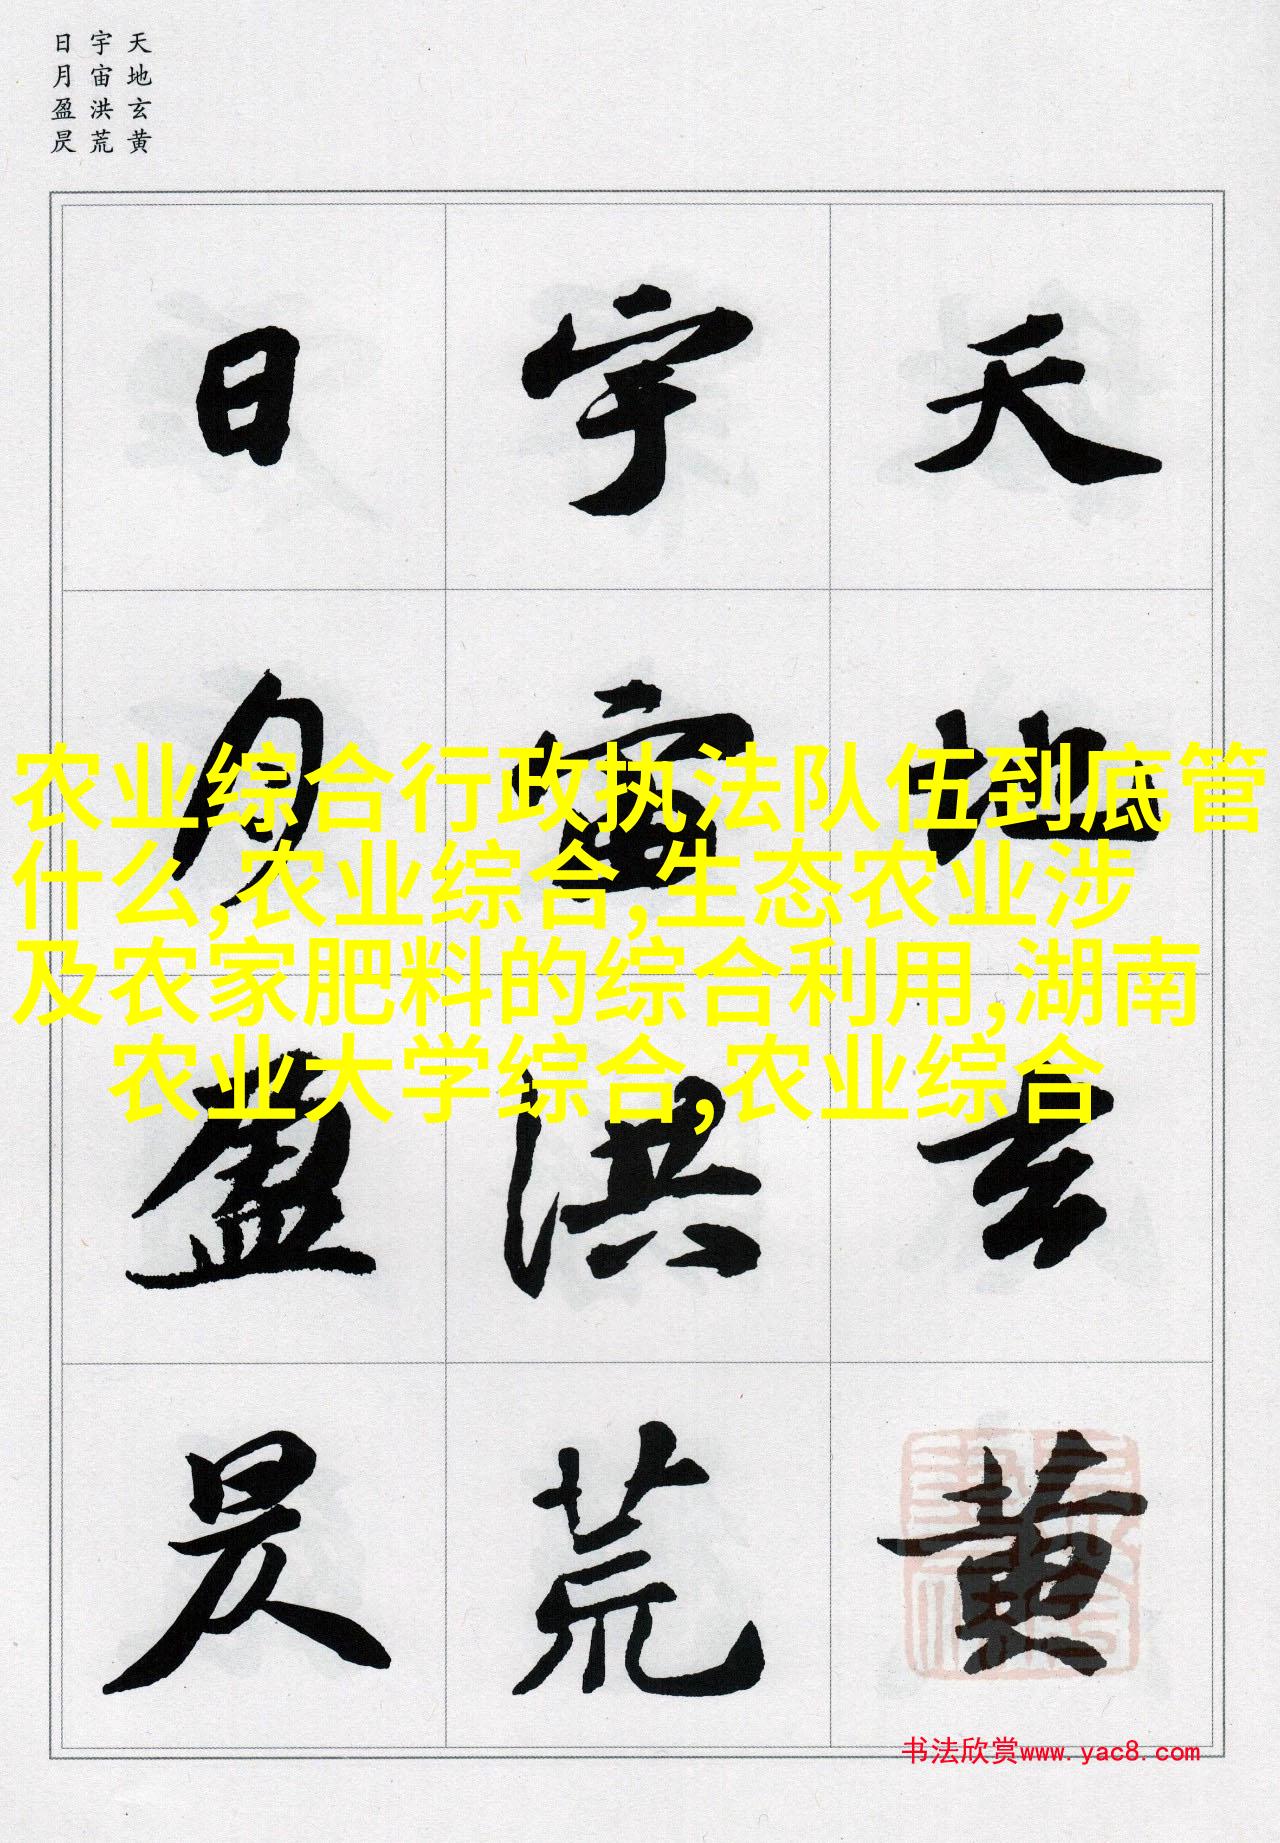 天地玄黄
宇宙洪荒
日月盈昃
天地玄黄
宇宙洪荒
日月盈昃
农业综合行政执法队伍到底管
什么,农业综合,生态农业涉
及农家肥料的综合利用,湖南
农业大学综合,农业综合
书法欣赏www.yac8.com